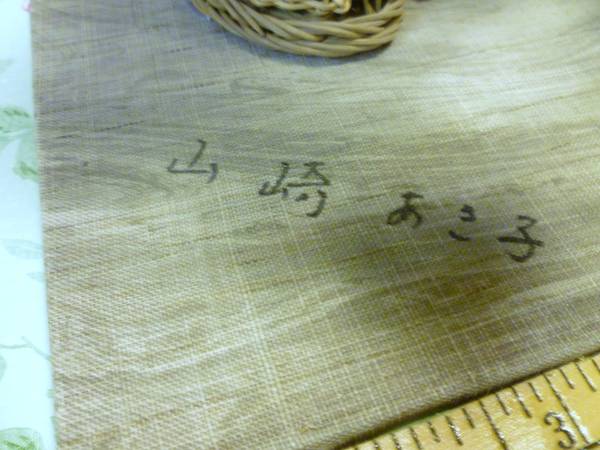 山崎 あき子
3